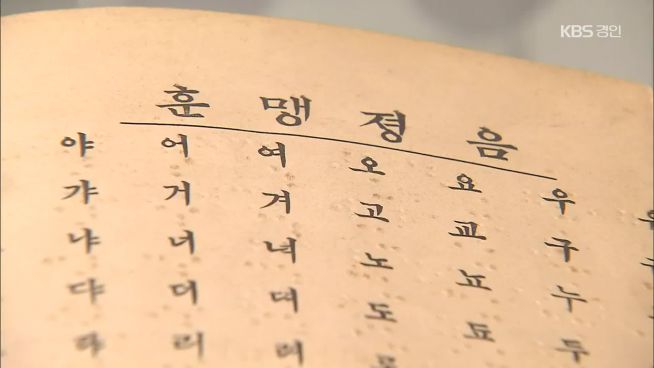 KBS 경인
훈맹졍음
야 어 여 오 요 우
갸 거 겨 고 교 구
냐 너 녀 노 뇨 누
댜 더 뎌 도 됴 두
랴 러 려